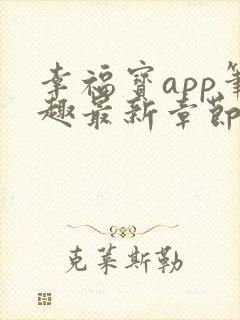 幸福宝app笔
趣最新章节
克莱斯勒